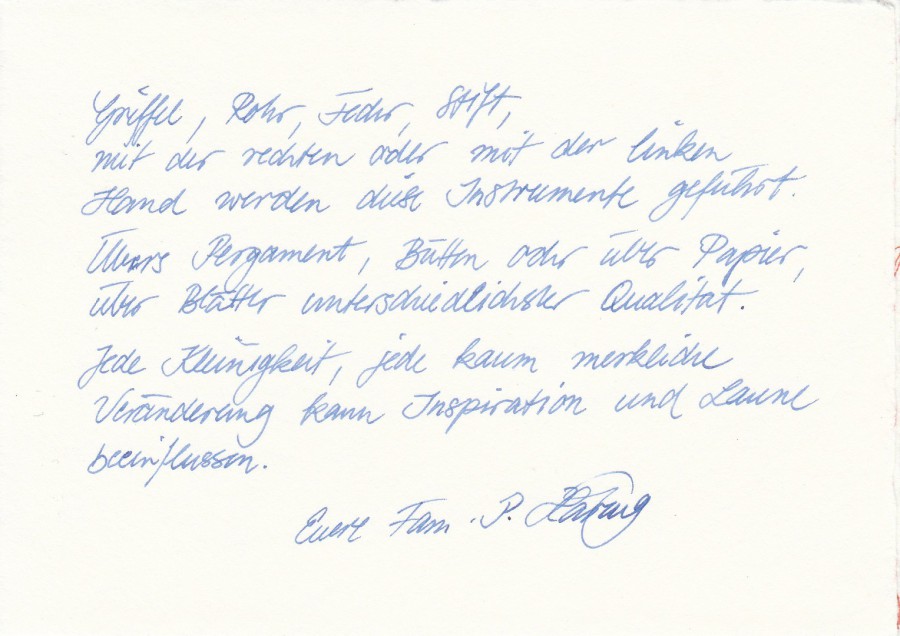 Griffel, Rohr, Feder, Stift,
mit der rechten oder mit der linken
Hand werden diese Instrumente geführt.
Übers Pergament, Bütten oder über Papier,
über Blätter unterschiedlichster Qualität.
Jede Kleinigkeit, jede kaum merkliche
Veränderung kann Inspiration und Laune
beeinflussen.
Euere Fam. P.